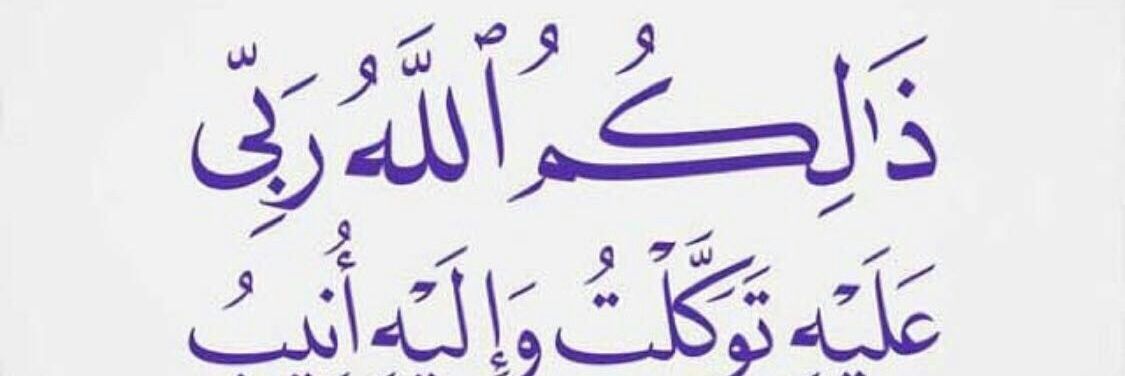 ذَٰلِكُمُ ٱللَّهُ رَبِّى
عَلَيْهِ تَوَكَّلْتُ وَإِلَيْهِ أُنِيبُ